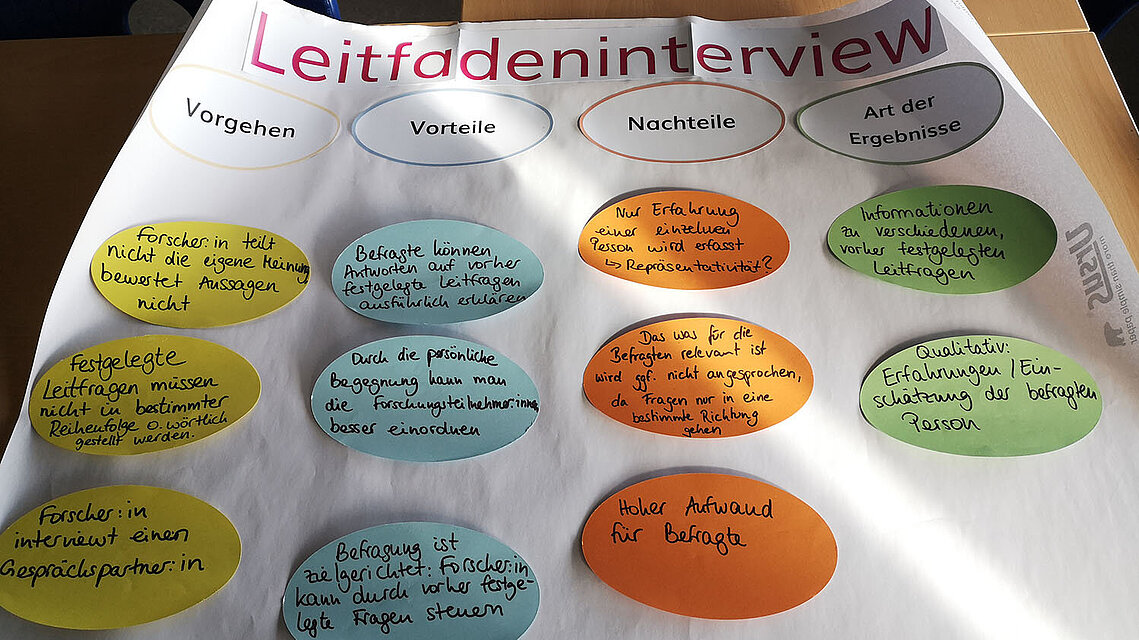 Leitfadeninterview
Vorgehen
Vorteile
Nachteile
Art der
Ergebnisse
Forscher:in teilt
nicht die eigene Meinung
bewertet Aussagen
nicht
Festgelegte
Leitfragen müssen
nicht in bestimmter
Reihenfolge o. wörtlich
gestellt werden.
Forscher:in
interviewt einen
Gesprächspartner:in
Befragte können
Antworten auf vorher
festgelegte Leitfragen
ausführlich erklären
Durch die persönliche
Begegnung kann man
die Forschungsteilnehmer:innen
besser einordnen
Befragung ist
zielgerichtet: Forscher:in
kann durch vorher festge-
legte Fragen steuern
Nur Erfahrung
einer einzelnen
Person wird erfasst
↳ Repräsentativität?
Das was für die
Befragten relevant ist
wird ggf. nicht angesprochen,
da Fragen nur in eine
bestimmte Richtung
gehen
Hoher Aufwand
für Befragte
Informationen
zu verschiedenen,
vorher festgelegten
Leitfragen
Qualitativ:
Erfahrungen / Ein-
schätzung der befragten
Person